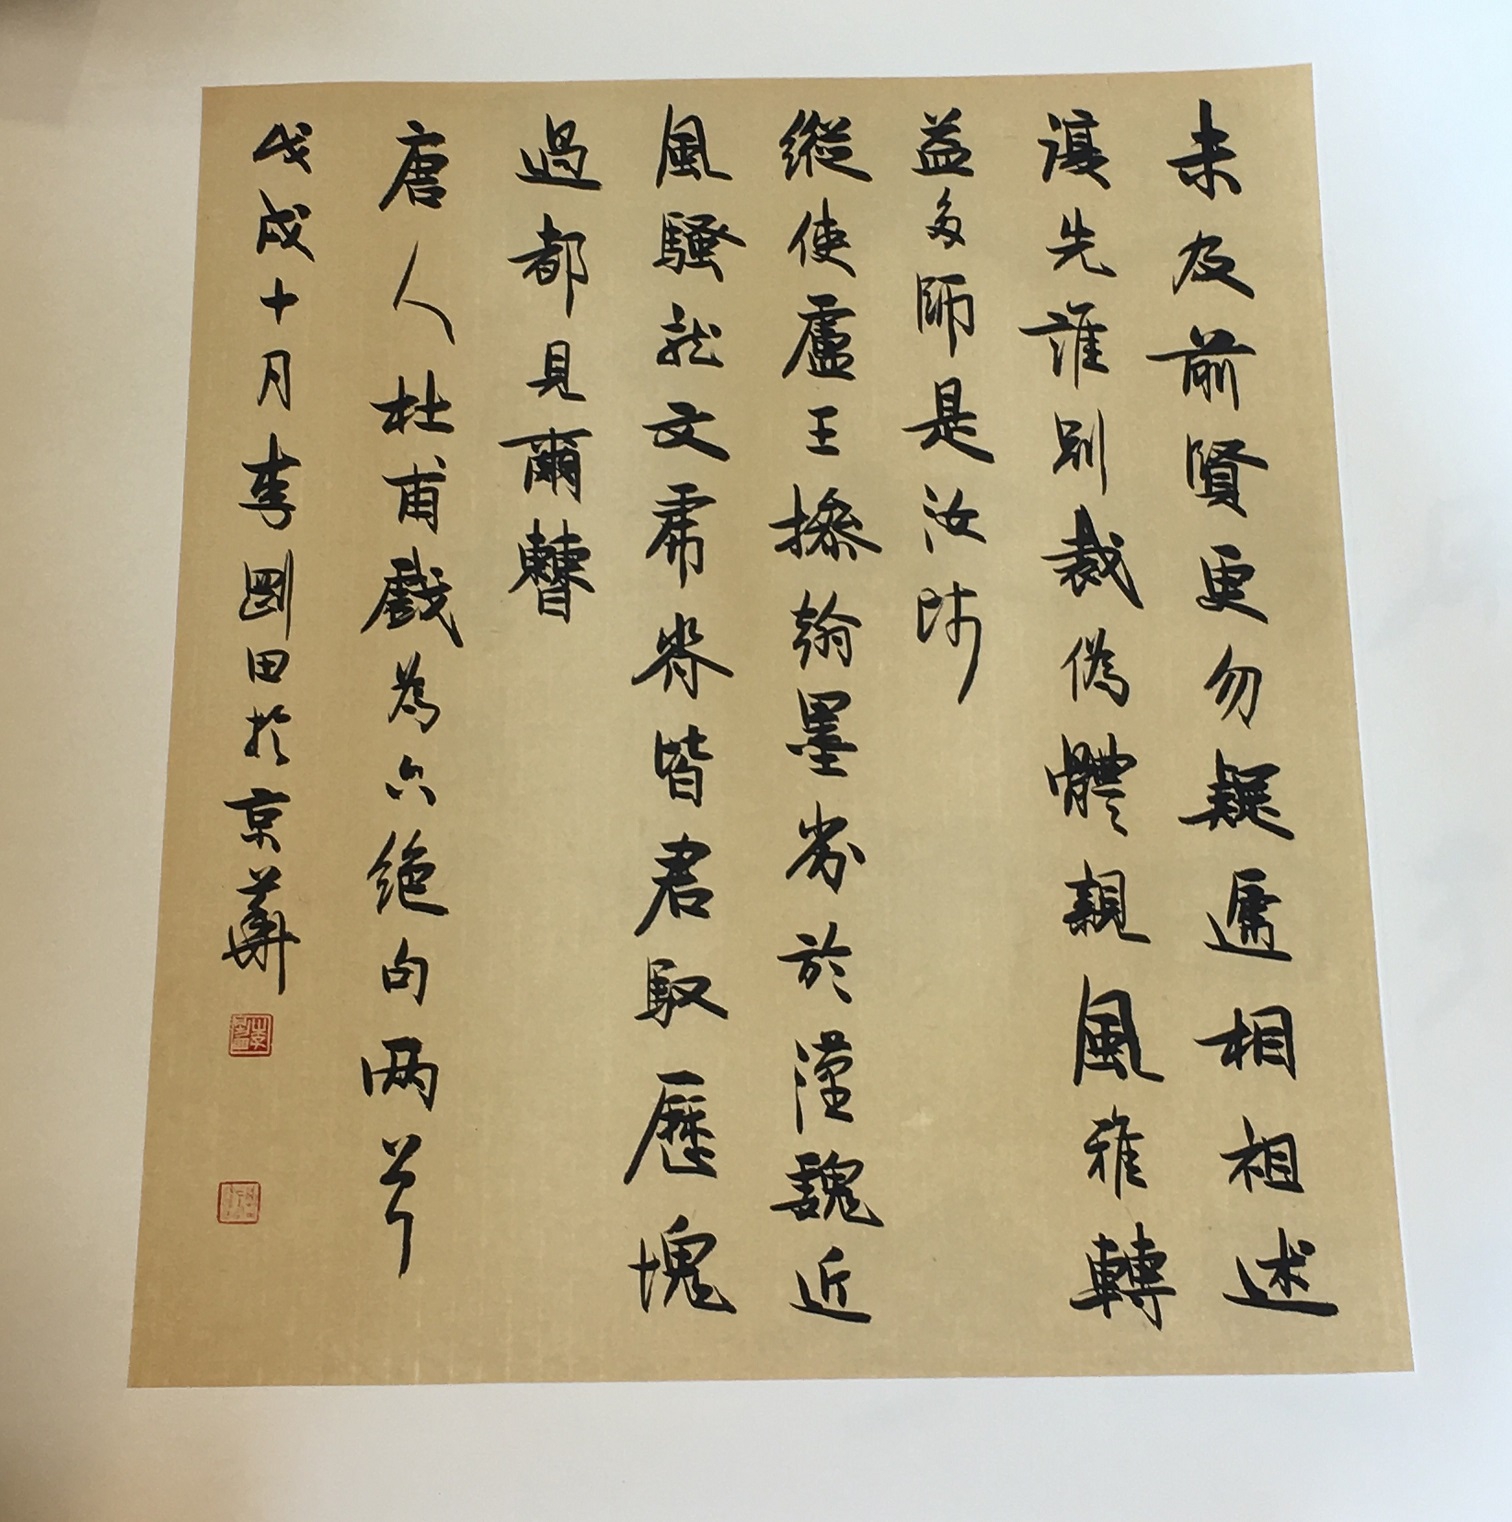 未及前賢更勿疑遞相祖述
復先誰別裁偽體親風雅轉
益多師是汝師
縱使盧王操翰墨劣於漢魏近
風騷龍文虎脊皆君馭歷塊
過都見爾曹
唐人杜甫戲為六絕句兩首
戊戌十月李剛田於京華